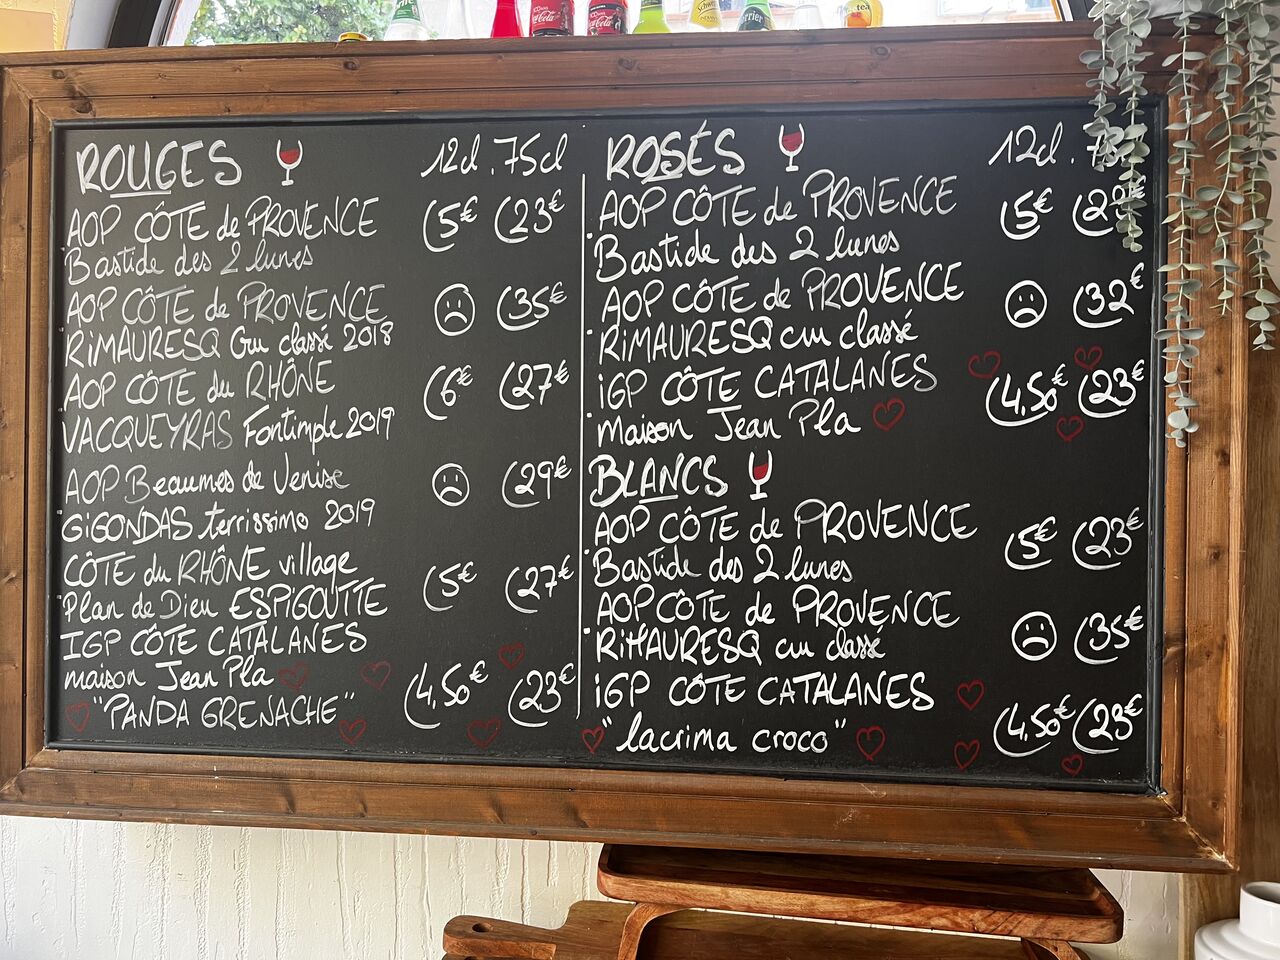 ROUGES 12cl . 75cl
AOP CÔTE de PROVENCE 5€ 23€
Bastide des 2 lunes
AOP CÔTE de PROVENCE 35€
RIMAURESQ Cru classé 2018
AOP CÔTE du RHÔNE 6€ 27€
VACQUEYRAS Fontimple 2019
AOP Beaumes de Venise 29€
GIGONDAS terrissimo 2019
CÔTE du RHÔNE village
Plan de Dieu ESPIGOUTTE 5€ 27€
IGP CÔTE CATALANES
maison Jean Pla
"PANDA GRENACHE" 4,50€ 23€
ROSÉS 12cl .
AOP CÔTE de PROVENCE 5€
Bastide des 2 lunes
AOP CÔTE de PROVENCE 32€
RIMAURESQ cru classé
IGP CÔTE CATALANES 4,50€ 23€
maison Jean Pla
BLANCS
AOP CÔTE de PROVENCE 5€ 23€
Bastide des 2 lunes
AOP CÔTE de PROVENCE 35€
RIMAURESQ cru classé
IGP CÔTE CATALANES 4,50€ 23€
"lacrima croco"